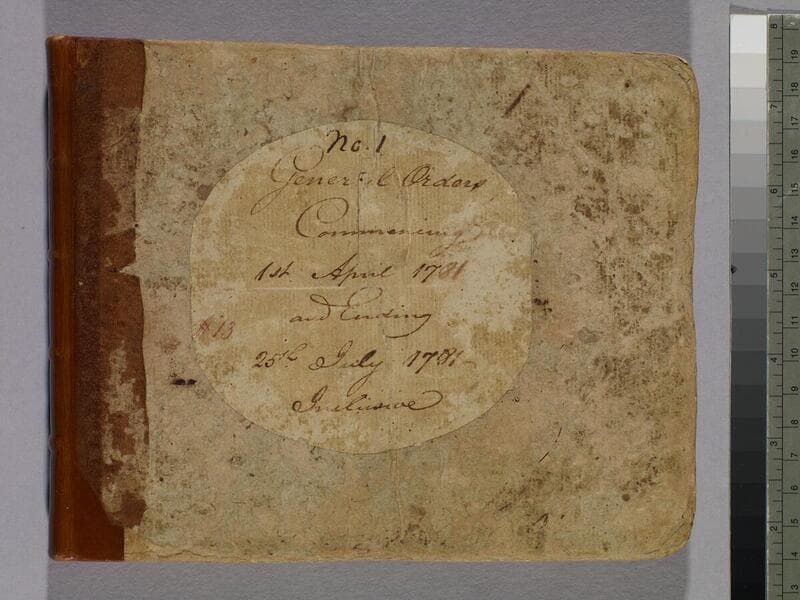 No. 1
General Orders
Commencing
1st April 1781
and Ending
#13
25th July 1781-
Inclusive
8
7
6
5
4
3
2
19
18
17
16
15
14
13
12
11
10
9
8
7
6
5
4
3